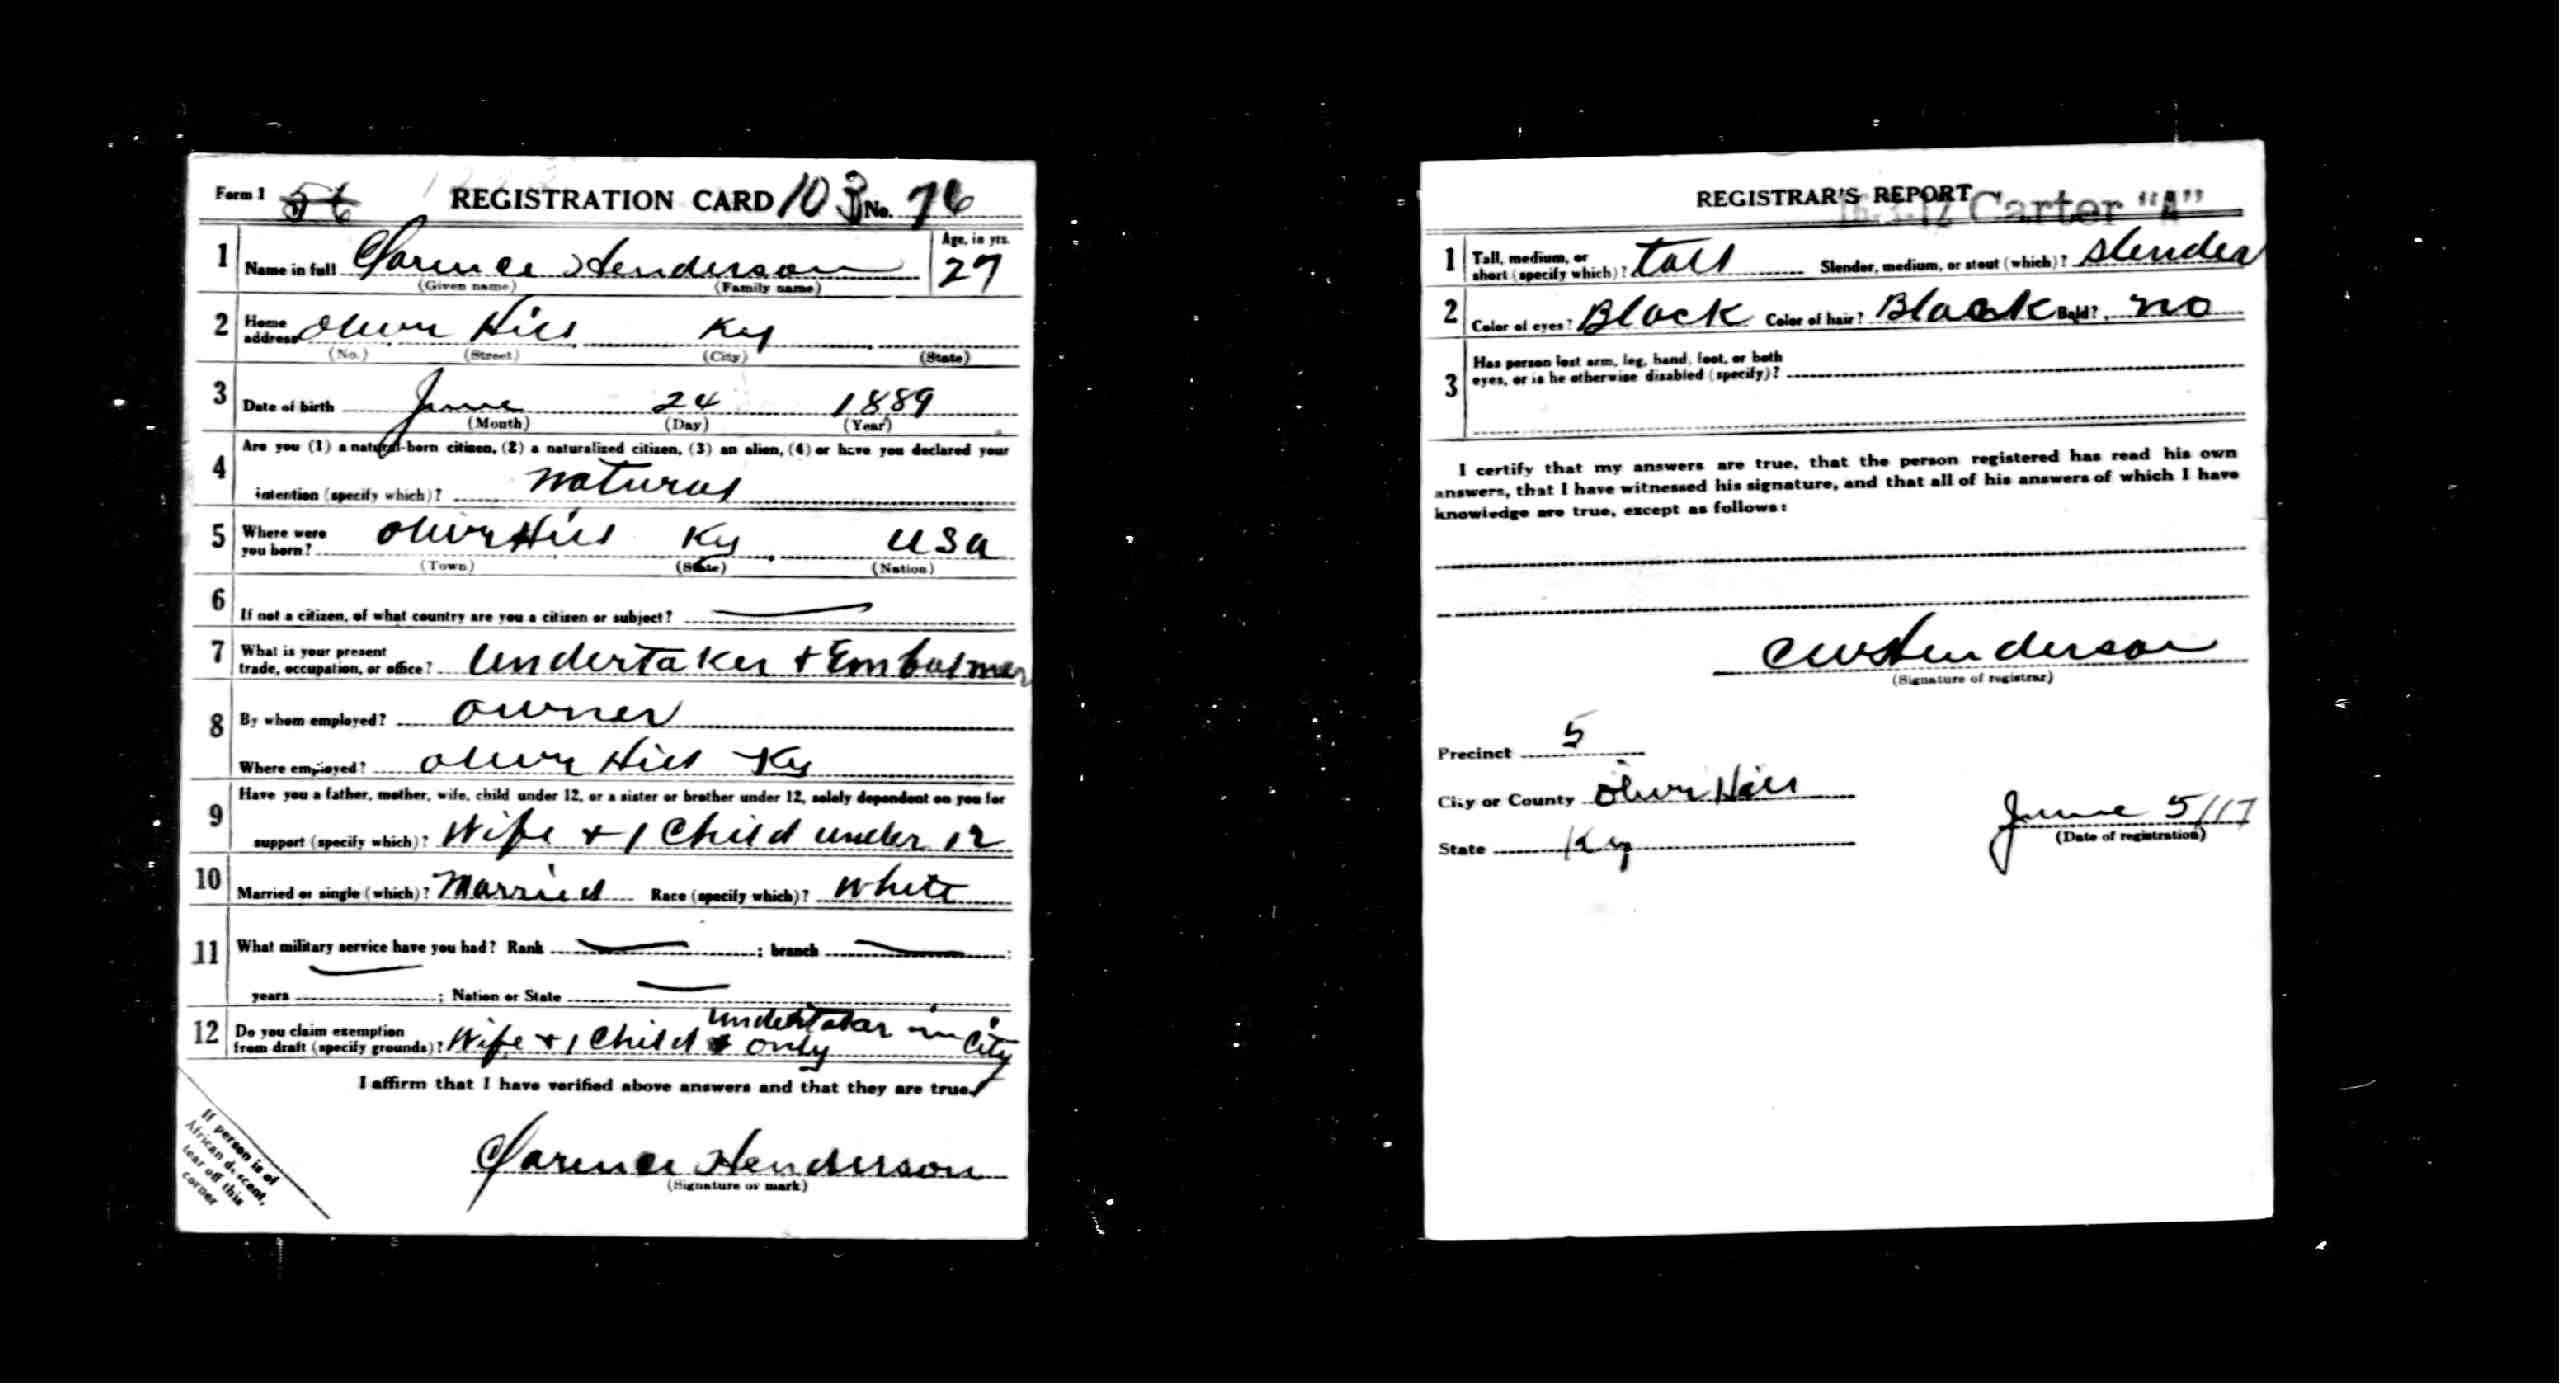 Form 1 56 REGISTRATION CARD 103 No. 76
1 Name in full Clarence Henderson Age, in yrs. 27
(Given name) (Family name)
2 Home address Olive Hill Ky
(No.) (Street) (City) (State)
3 Date of birth June 24 1889
(Month) (Day) (Year)
4 Are you (1) a natural-born citizen, (2) a naturalized citizen, (3) an alien, (4) or have you declared your
intention (specify which)? natural
5 Where were you born? Olive Hill Ky USA
(Town) (State) (Nation)
6 If not a citizen, of what country are you a citizen or subject?
7 What is your present trade, occupation, or office? Undertaker + Embalmer
8 By whom employed? owner
Where employed? Olive Hill Ky
9 Have you a father, mother, wife, child under 12, or a sister or brother under 12, solely dependent on you for
support (specify which)? Wife + 1 Child under 12
10 Married or single (which)? Married Race (specify which)? White
11 What military service have you had? Rank ; branch ;
years ; Nation or State
12 Do you claim exemption from draft (specify grounds)? Wife + 1 Child + only undertaker in City
I affirm that I have verified above answers and that they are true.
Clarence Henderson
(Signature or mark)
If person is of
African descent,
tear off this
corner
REGISTRAR'S REPORT
16-3-12 Carter "A"
1 Tall, medium, or short (specify which)? tall Slender, medium, or stout (which)? slender
2 Color of eyes? Black Color of hair? Black Bald? no
3 Has person lost arm, leg, hand, foot, or both
eyes, or is he otherwise disabled (specify)?
I certify that my answers are true, that the person registered has read his own
answers, that I have witnessed his signature, and that all of his answers of which I have
knowledge are true, except as follows:
CW Henderson
(Signature of registrar)
Precinct 5
City or County Olive Hill
State Ky
June 5/17
(Date of registration)